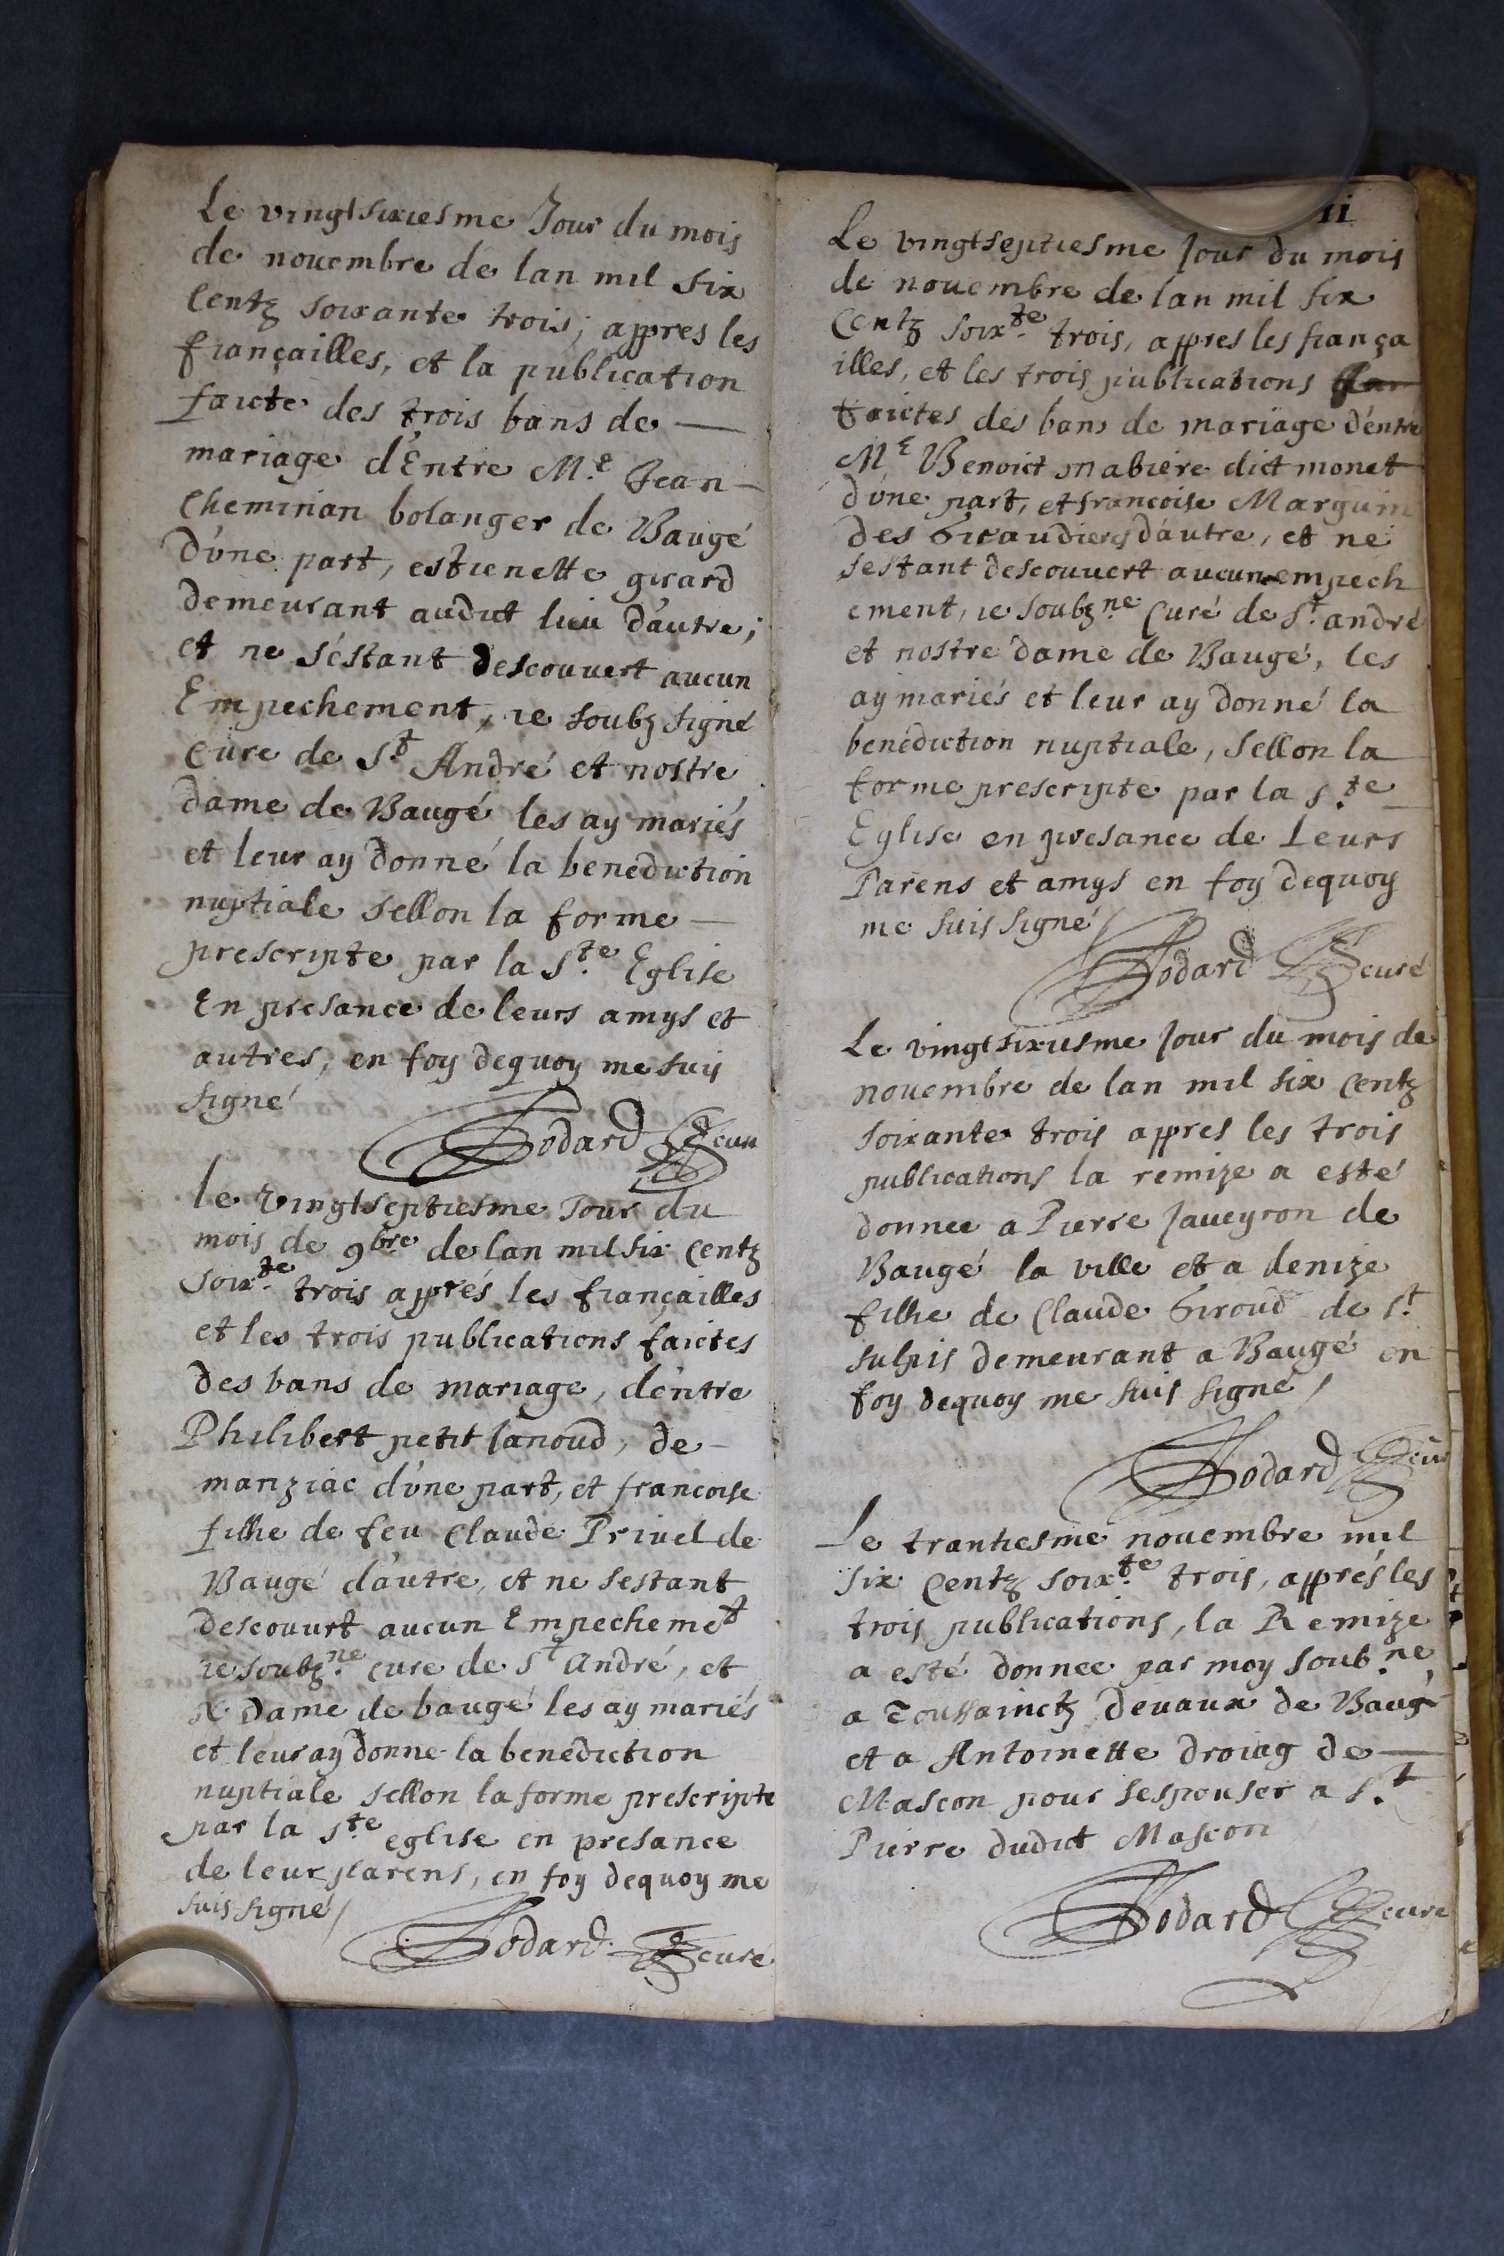 Le vingtsixiesme Jour du mois
de nouembre de lan mil six
Centz soixante trois; appres les
françailles, et la publication
faicte des trois bans de —
mariage d'Entre M.e Jean —
Cheminan bolanger de Baugé
d'une part, estienette girard
demeurant audict lieu d'autre;
et ne s'estant descouvert aucun
Empechement, ie soubz signé
Cure de S.t André et nostre
dame de Baugé les ay mariés
et leur ay donné la benediction
nuptiale sellon la forme —
prescripte par la S.te Eglise
En presance de leurs amys et
autres, en foy dequoy me suis
signé
Bodard cure
le vingtseptiesme Jour du
mois de 9bre de lan mil six Centz
Soix.te trois apprés les françailles
et les trois publications faictes
des bans de mariage, d'entre
Philibert petit Janoud, de —
manziac d'une part, et francoise
filhe de feu Claude Privel de
Baugé d'autre, et ne sestant
descouurt aucun Empecheme.t
ie soubz.ne cure de S.t André, et
N. Dame de baugé les ay mariés
et leur ay donne la benediction
nuptiale sellon la forme prescripte
par la S.te eglise en presance
de leur parens, en foy dequoy me
suis signé /
Bodard curé
11
Le vingtseptiesme Jour du mois
de nouembre de lan mil six
Centz soix.te trois, appres les frança
illes, et les trois publications
faictes des bans de mariage d'entre
M.e Benoict mabiere dict monet
d'une part, et francoise Marguin
des Giraudiers d'autre, et ne
sestant descouvert aucun empech
ement, ie soubz.ne Curé de S.t andré
et nostre dame de Baugé, les
ay mariés et leur ay donné la
benediction nuptiale, sellon la
forme prescripte par la s.te —
Eglise en presance de Leurs
Parens et amys en foy dequoy
me suis signé /
Bodard curé
Le vingtsixiesme Jour du mois de
nouembre de lan mil six Centz
soixante trois appres les trois
publications la remize a esté
donnee a Pierre Javeyron de
Baugé la ville et a denize
filhe de Claude Giroud de S.t
sulpis demeurant a Baugé en
foy dequoy me suis signé /
Bodard cur
Le trantiesme nouembre mil
six Centz soix.te trois, apprés les
trois publications, la Remize
a esté donnee par moy soub.ne
a Toussainctz Devaux de Baug
et a Antoinette droiag de —
Mascon pour sespouser a S.t
Pierre dudict Mascon
Bodard cure